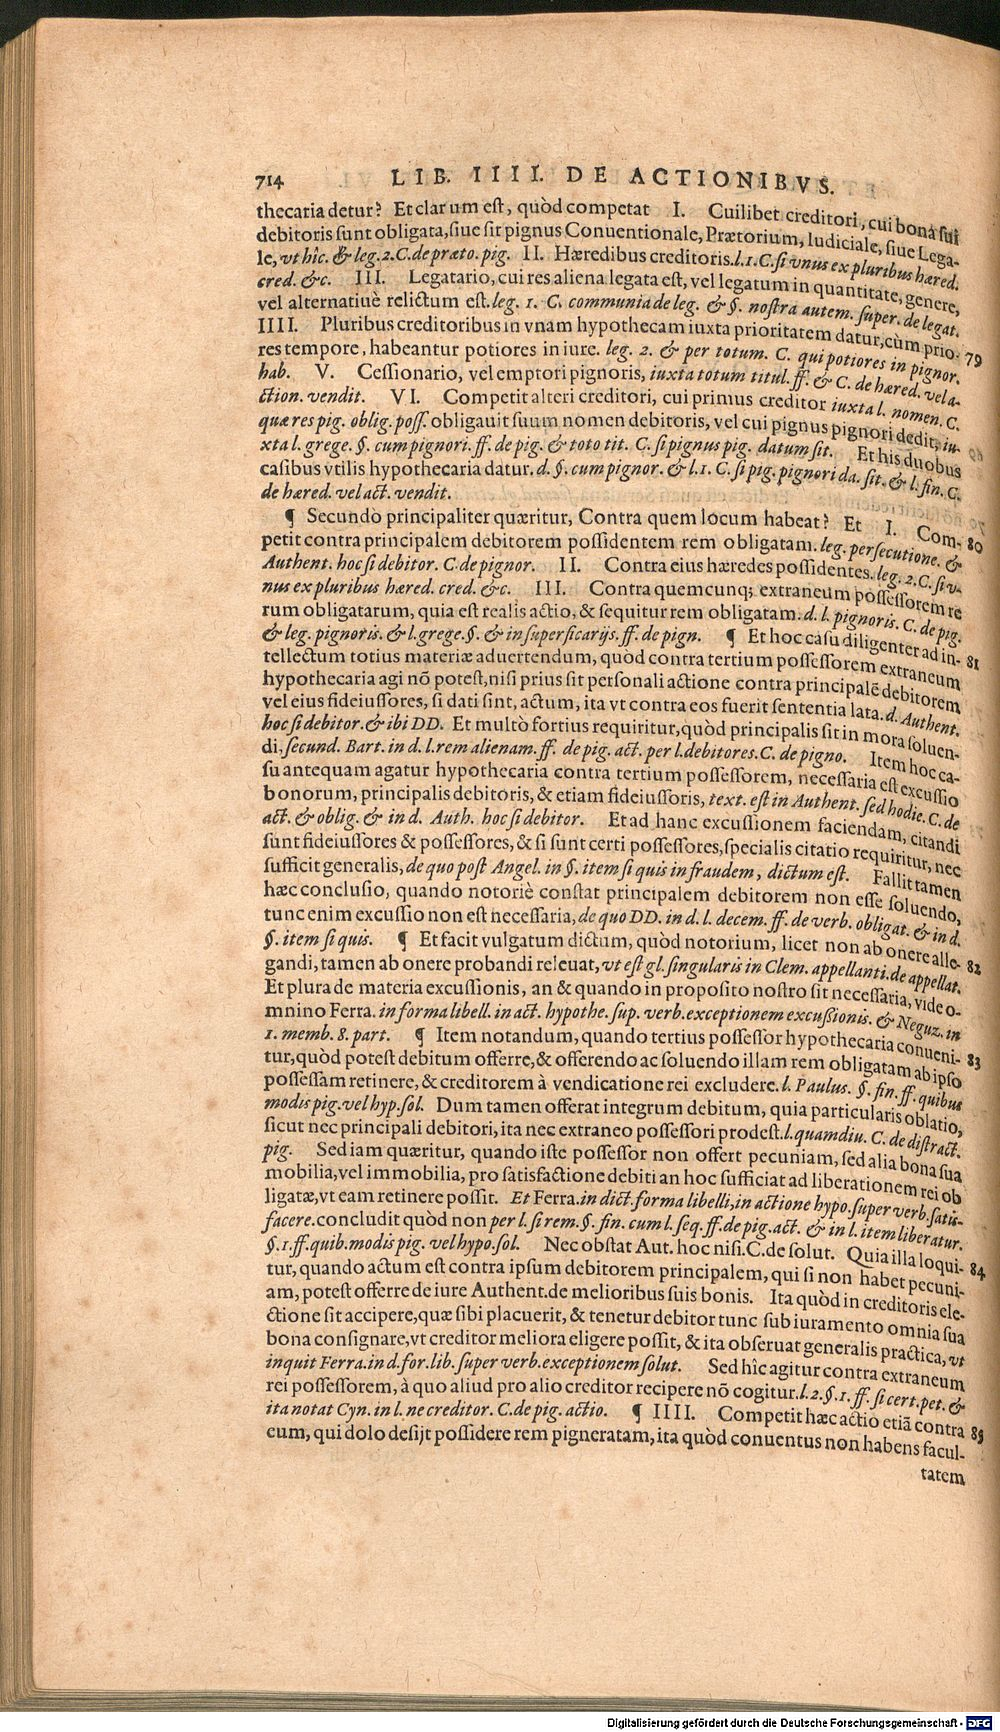 714 LIB. IIII. DE ACTIONIBVS.
thecaria detur? Et clarum est, quòd competat I. Cuilibet creditori, cui bona sui
debitoris sunt obligata, siue sit pignus Conuentionale, Prætorium, Iudiciale, siue Lega-
le, vt hîc. & leg. 2. C. de præto. pig. II. Hæredibus creditoris. l. 1. C. si vnus ex pluribus hæred.
cred. &c. III. Legatario, cui res aliena legata est, vel legatum in quantitate, genere,
vel alternatiuè relictum est. leg. 1. C. communia de leg. & §. nostra autem. super. de legat.
IIII. Pluribus creditoribus in vnam hypothecam iuxta prioritatem datur, cùm prio- 79
res tempore, habeantur potiores in iure. leg. 2. & per totum. C. qui potiores in pignor.
hab. V. Cessionario, vel emptori pignoris, iuxta totum titul. ff. & C. de hæred. vel a-
ction. vendit. VI. Competit alteri creditori, cui primus creditor iuxta l. nomen. C.
quæ res pig. oblig. poss. obligauit suum nomen debitoris, vel cui pignus pignori dedit, iu-
xta l. grege. §. cum pignori. ff. de pig. & toto tit. C. si pignus pig. datum sit. Et his duobus
casibus vtilis hypothecaria datur. d. §. cum pignor. & l. 1. C. si pig. pignori da. sit. & l. fin. C.
de hæred. vel act. vendit.
¶ Secundò principaliter quæritur, Contra quem locum habeat? Et I. Com- 80
petit contra principalem debitorem possidentem rem obligatam. leg. persecutione. &
Authent. hoc si debitor. C. de pignor. II. Contra eius hæredes possidentes. leg. 2. C. si v-
nus ex pluribus hæred. cred. &c. III. Contra quemcunq; extraneum possessorem re
rum obligatarum, quia est realis actio, & sequitur rem obligatam. d. l. pignoris. C. de pig.
& leg. pignoris. & l. grege. §. & in superficarijs. ff. de pign. ¶ Et hoc casu diligenter ad in- 81
tellectum totius materiæ aduertendum, quòd contra tertium possessorem extraneum
hypothecaria agi nõ potest, nisi prius sit personali actione contra principalẽ debitorem
vel eius fideiussores, si dati sint, actum, ita vt contra eos fuerit sententia lata. d. Authent.
hoc si debitor. & ibi DD. Et multò fortius requiritur, quòd principalis sit in mora soluen-
di, secund. Bart. in d. l. rem alienam. ff. de pig. act. per l. debitores. C. de pigno. Item hoc ca-
su antequam agatur hypothecaria contra tertium possessorem, necessaria est excussio
bonorum, principalis debitoris, & etiam fideiussoris, text. est in Authent. sed hodie. C. de
act. & oblig. & in d. Auth. hoc si debitor. Et ad hanc excussionem faciendam, citandi
sunt fideiussores & possessores, & si sunt certi possessores, specialis citatio requiritur, nec
sufficit generalis, de quo post Angel. in §. item si quis in fraudem, dictum est. Fallit tamen
hæc conclusio, quando notoriè constat principalem debitorem non esse soluendo,
tunc enim excussio non est necessaria, de quo DD. in d. l. decem. ff. de verb. obligat. & in d.
§. item si quis. ¶ Et facit vulgatum dictum, quòd notorium, licet non ab onere alle- 82
gandi, tamen ab onere probandi releuat, vt est gl. singularis in Clem. appellanti. de appellat.
Et plura de materia excussionis, an & quando in proposito nostro sit necessaria, vide o-
mnino Ferra. in forma libell. in act. hypothe. sup. verb. exceptionem excussionis. & Neguz. in
1. memb. 8. part. ¶ Item notandum, quando tertius possessor hypothecaria conueni- 83
tur, quòd potest debitum offerre, & offerendo ac soluendo illam rem obligatam ab ipso
possessam retinere, & creditorem à vendicatione rei excludere. l. Paulus. §. fin. ff. quibus
modis pig. vel hyp. sol. Dum tamen offerat integrum debitum, quia particularis oblatio,
sicut nec principali debitori, ita nec extraneo possessori prodest. l. quamdiu. C. de distract.
pig. Sed iam quæritur, quando iste possessor non offert pecuniam, sed alia bona sua
mobilia, vel immobilia, pro satisfactione debiti an hoc sufficiat ad liberationem rei ob
ligatæ, vt eam retinere possit. Et Ferra. in dict. forma libelli, in actione hypo. super verb. satis-
facere. concludit quòd non per l. si rem. §. fin. cum l. seq. ff. de pig. act. & in l. item liberatur.
§. 1. ff. quib. modis pig. vel hypo. sol. Nec obstat Aut. hoc nisi. C. de solut. Quia illa loqui- 84
tur, quando actum est contra ipsum debitorem principalem, qui si non habet pecuni-
am, potest offerre de iure Authent. de melioribus suis bonis. Ita quòd in creditoris ele-
ctione sit accipere, quæ sibi placuerit, & tenetur debitor tunc sub iuramento omnia sua
bona consignare, vt creditor meliora eligere possit, & ita obseruat generalis practica, vt
inquit Ferra. in d. for. lib. super verb. exceptionem solut. Sed hîc agitur contra extraneum
rei possessorem, à quo aliud pro alio creditor recipere nõ cogitur. l. 2. §. 1. ff. si cert. pet. &
ita notat Cyn. in l. ne creditor. C. de pig. actio. ¶ IIII. Competit hæc actio etiã contra 85
eum, qui dolo desijt possidere rem pigneratam, ita quòd conuentus non habens facul-
tatem
Digitalisierung gefördert durch die Deutsche Forschungsgemeinschaft - DFG